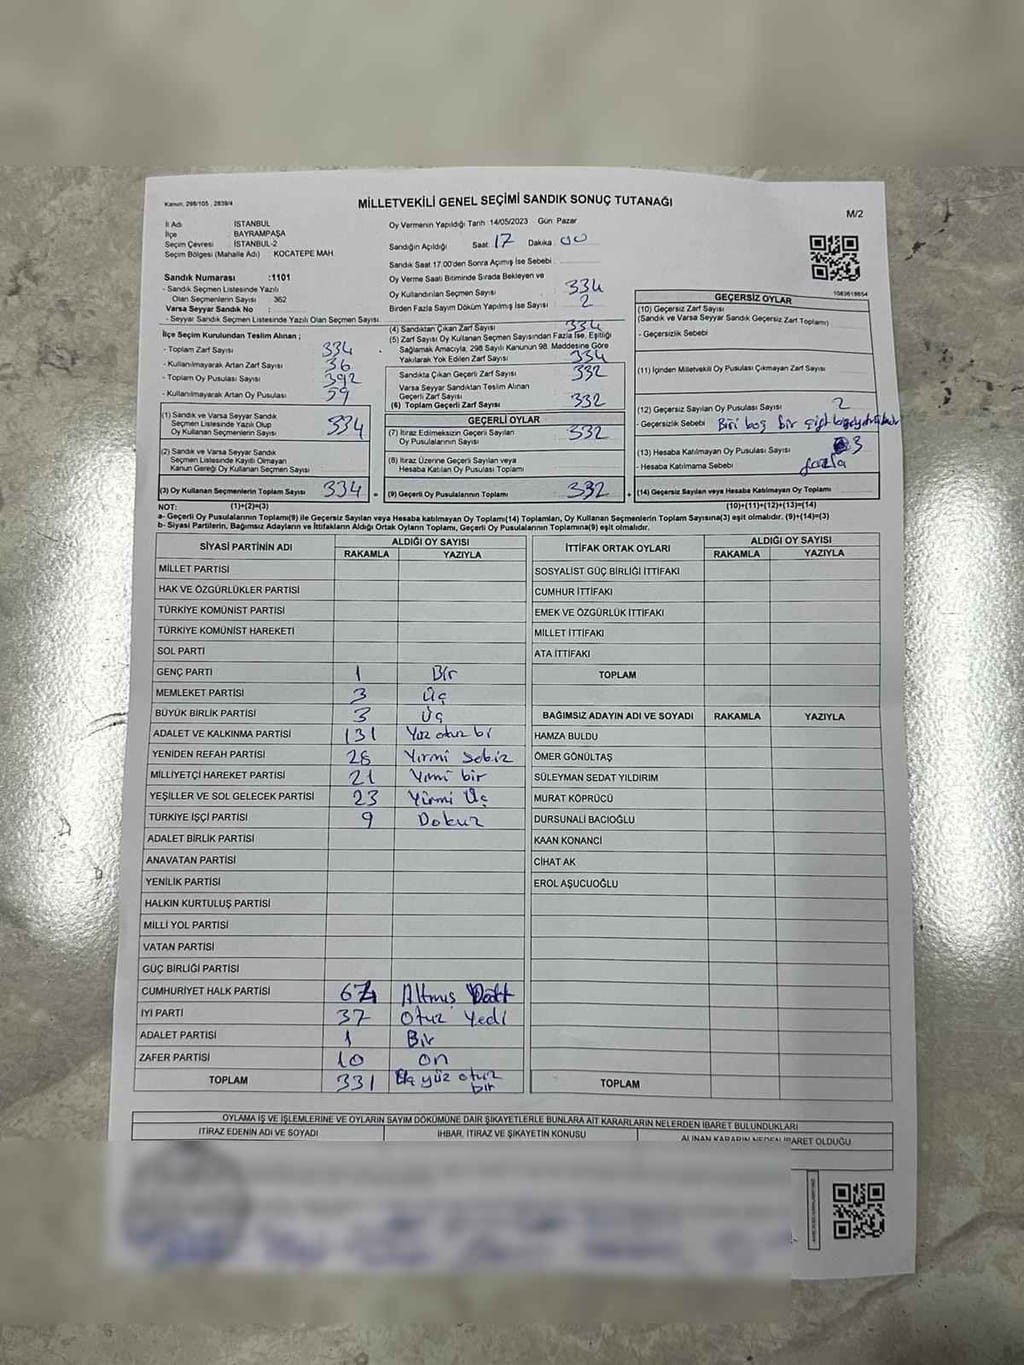 Kanun: 298/105 , 2839/4
MİLLETVEKİLİ GENEL SEÇİMİ SANDIK SONUÇ TUTANAĞI
M/2
İl Adı İSTANBUL
İlçe BAYRAMPAŞA
Seçim Çevresi İSTANBUL-2
Seçim Bölgesi (Mahalle Adı) KOCATEPE MAH
Sandık Numarası :1101
- Sandık Seçmen Listesinde Yazılı
Olan Seçmenlerin Sayısı 362
Varsa Seyyar Sandık No :
- Seyyar Sandık Seçmen Listesinde Yazılı Olan Seçmen Sayısı
İlçe Seçim Kurulundan Teslim Alınan ;
- Toplam Zarf Sayısı 334
- Kullanılmayarak Artan Zarf Sayısı 36
- Toplam Oy Pusulası Sayısı 392
- Kullanılmayarak Artan Oy Pusulası 59
(1) Sandık ve Varsa Seyyar Sandık
Seçmen Listesinde Yazılı Olup
Oy Kullanan Seçmenlerin Sayısı 334
(2) Sandık ve Varsa Seyyar Sandık
Seçmen Listesinde Kayıtlı Olmayan
Kanun Gereği Oy Kullanan Seçmen Sayısı
(3) Oy Kullanan Seçmenlerin Toplam Sayısı 334
Oy Vermenin Yapıldığı Tarih 14/05/2023 Gün: Pazar
Sandığın Açıldığı Saat: 17 Dakika: 00
Sandık Saat 17.00'den Sonra Açımış İse Sebebi
Oy Verme Saati Bitiminde Sırada Bekleyen ve
Oy Kullandırılan Seçmen Sayısı 334
Birden Fazla Sayım Döküm Yapılmış İse Sayısı 2
(4) Sandıktan Çıkan Zarf Sayısı 334
(5) Zarf Sayısı Oy Kullanan Seçmen Sayısından Fazla İse, Eşitliği
Sağlamak Amacıyla, 298 Sayılı Kanunun 98. Maddesine Göre
Yakılarak Yok Edilen Zarf Sayısı 334
Sandıkta Çıkan Geçerli Zarf Sayısı 332
Varsa Seyyar Sandıktan Teslim Alınan
Geçerli Zarf Sayısı
(6) Toplam Geçerli Zarf Sayısı 332
GEÇERLİ OYLAR
(7) İtiraz Edilmeksizin Geçerli Sayılan
Oy Pusulalarının Sayısı 332
(8) İtiraz Üzerine Geçerli Sayılan veya
Hesaba Katılan Oy Pusulası Toplamı
(9) Geçerli Oy Pusulalarının Toplamı 332
1083618654
GEÇERSİZ OYLAR
(10) Geçersiz Zarf Sayısı
(Sandık ve Varsa Seyyar Sandık Geçersiz Zarf Toplamı)
- Geçersizlik Sebebi
(11) İçinden Milletvekili Oy Pusulası Çıkmayan Zarf Sayısı
(12) Geçersiz Sayılan Oy Pusulası Sayısı 2
- Geçersizlik Sebebi Biri boş bir çift
(13) Hesaba Katılmayan Oy Pusulası Sayısı 3
- Hesaba Katılmama Sebebi fazla
(14) Geçersiz Sayılan veya Hesaba Katılmayan Oy Toplamı
NOT: (1)+(2)=(3) (10)+(11)+(12)+(13)=(14)
a- Geçerli Oy Pusulalarının Toplamı(9) ile Geçersiz Sayılan veya Hesaba katılmayan Oy Toplamı(14) Toplamları, Oy Kullanan Seçmenlerin Toplam Sayısına(3) eşit olmalıdır. (9)+(14)=(3)
b- Siyasi Partilerin, Bağımsız Adayların ve İttifakların Aldığı Ortak Oyların Toplamı, Geçerli Oy Pusulalarının Toplamına(9) eşit olmalıdır.
SİYASİ PARTİNİN ADI ALDIĞI OY SAYISI
RAKAMLA YAZIYLA
MİLLET PARTİSİ
HAK VE ÖZGÜRLÜKLER PARTİSİ
TÜRKİYE KOMÜNİST PARTİSİ
TÜRKİYE KOMÜNİST HAREKETİ
SOL PARTİ
GENÇ PARTİ 1 Bir
MEMLEKET PARTİSİ 3 Üç
BÜYÜK BİRLİK PARTİSİ 3 Üç
ADALET VE KALKINMA PARTİSİ 131 Yüz otuz bi
YENİDEN REFAH PARTİSİ 28 Yirmi sekiz
MİLLİYETÇİ HAREKET PARTİSİ 21 Yirmi bir
YEŞİLLER VE SOL GELECEK PARTİSİ 23 Yirmi Üç
TÜRKİYE İŞÇİ PARTİSİ 9 Dokuz
ADALET BİRLİK PARTİSİ
ANAVATAN PARTİSİ
YENİLİK PARTİSİ
HALKIN KURTULUŞ PARTİSİ
MİLLİ YOL PARTİSİ
VATAN PARTİSİ
GÜÇ BİRLİĞİ PARTİSİ
CUMHURİYET HALK PARTİSİ 64 Altmış Dört
İYİ PARTİ 37 Otuz Yedi
ADALET PARTİSİ 1 Bir
ZAFER PARTİSİ 10 on
TOPLAM 331 Üç yüz otuz
bir
İTTİFAK ORTAK OYLARI ALDIĞI OY SAYISI
RAKAMLA YAZIYLA
SOSYALİST GÜÇ BİRLİĞİ İTTİFAKI
CUMHUR İTTİFAKI
EMEK VE ÖZGÜRLÜK İTTİFAKI
MİLLET İTTİFAKI
ATA İTTİFAKI
TOPLAM
BAĞIMSIZ ADAYIN ADI VE SOYADI RAKAMLA YAZIYLA
HAMZA BULDU
ÖMER GÖNÜLTAŞ
SÜLEYMAN SEDAT YILDIRIM
MURAT KÖPRÜCÜ
DURSUNALİ BACIOĞLU
KAAN KONANCİ
CİHAT AK
EROL AŞUCUOĞLU
TOPLAM
OYLAMA İŞ VE İŞLEMLERİNE VE OYLARIN SAYIM DÖKÜMÜNE DAİR ŞİKAYETLERLE BUNLARA AİT KARARLARIN NELERDEN İBARET BULUNDUKLARI
İTİRAZ EDENİN ADI VE SOYADI İHBAR, İTİRAZ VE ŞİKAYETİN KONUSU ALINAN KARARIN NEDEN İBARET OLDUĞU